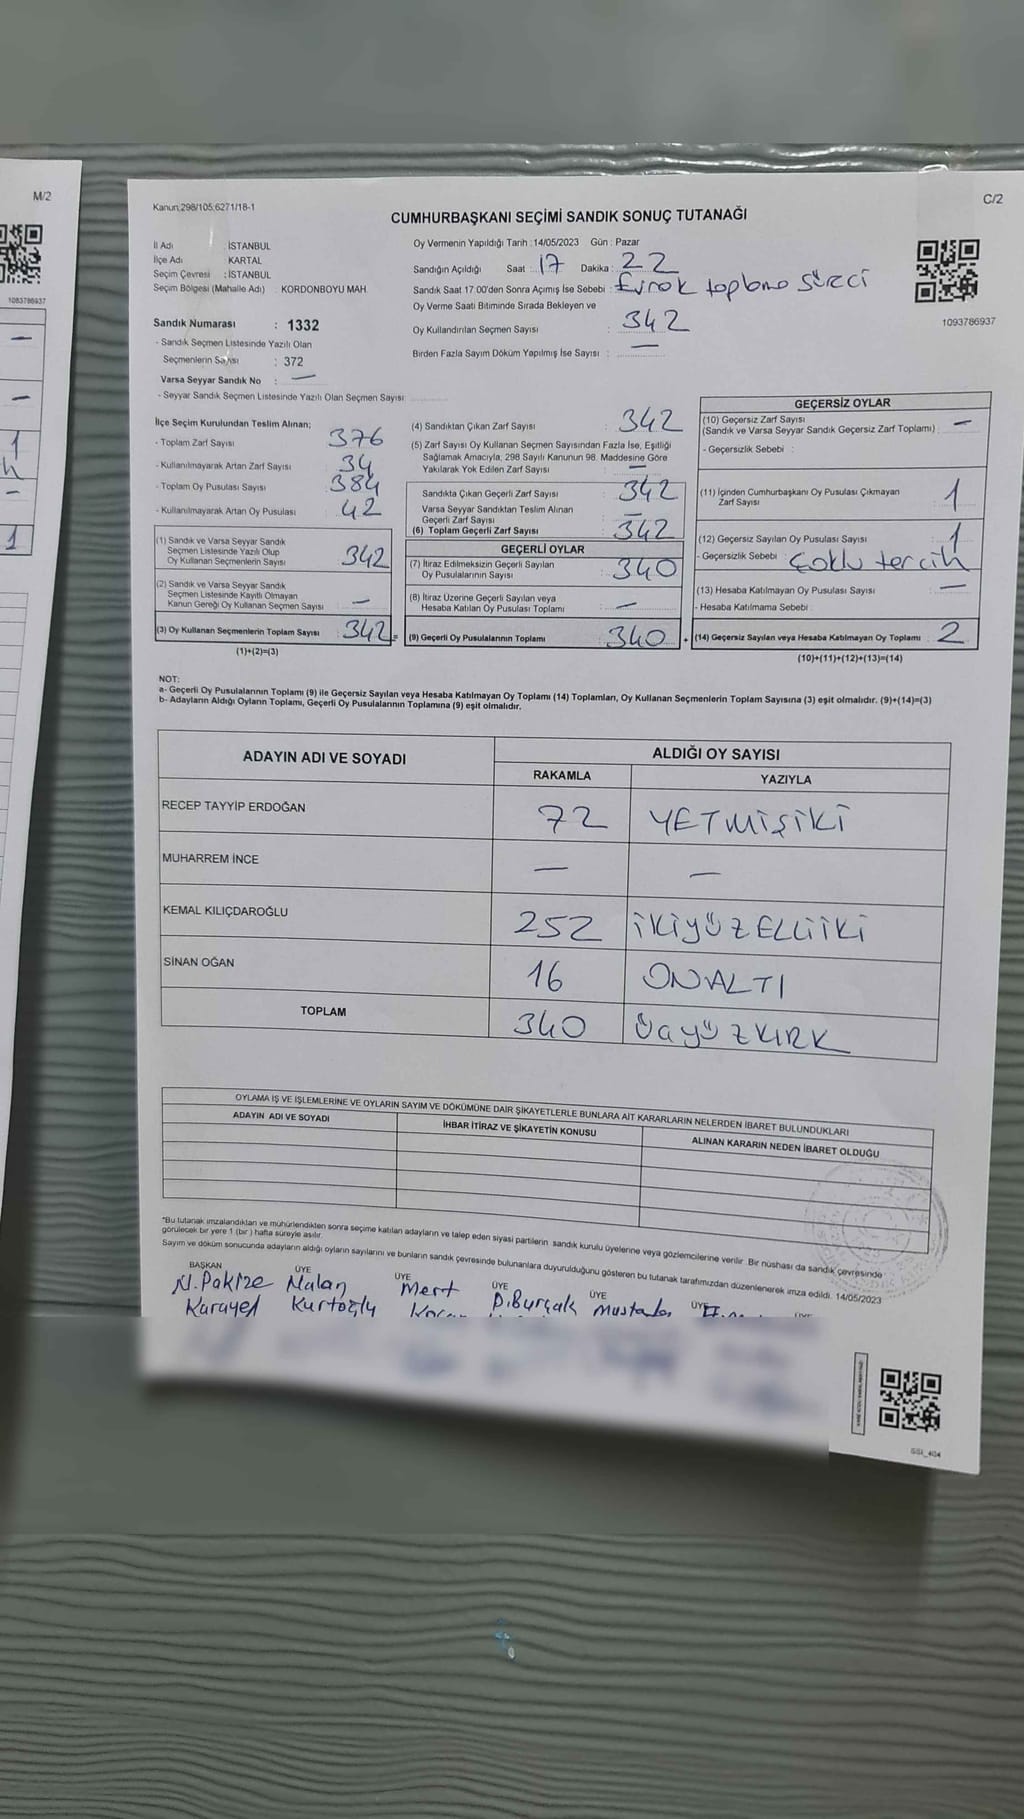 M/2
1093786937
1
1
Kanun 298/105;6271/18-1
C/2
CUMHURBAŞKANI SEÇİMİ SANDIK SONUÇ TUTANAĞI
İl Adı : İSTANBUL
İlçe Adı : KARTAL
Seçim Çevresi : İSTANBUL
Seçim Bölgesi (Mahalle Adı) : KORDONBOYU MAH.
Sandık Numarası : 1332
- Sandık Seçmen Listesinde Yazılı Olan
Seçmenlerin Sayısı : 372
Varsa Seyyar Sandık No : —
- Seyyar Sandık Seçmen Listesinde Yazılı Olan Seçmen Sayısı
Oy Vermenin Yapıldığı Tarih : 14/05/2023 Gün : Pazar
Sandığın Açıldığı Saat : 17 Dakika : 22
Sandık Saat 17.00'den Sonra Açımış İse Sebebi : Evrak toplama süreci
Oy Verme Saati Bitiminde Sırada Bekleyen ve
Oy Kullandırılan Seçmen Sayısı : 342
Birden Fazla Sayım Döküm Yapılmış İse Sayısı : —
1093786937
İlçe Seçim Kurulundan Teslim Alınan;
- Toplam Zarf Sayısı 376
- Kullanılmayarak Artan Zarf Sayısı 34
- Toplam Oy Pusulası Sayısı 384
- Kullanılmayarak Artan Oy Pusulası 42
(1) Sandık ve Varsa Seyyar Sandık
Seçmen Listesinde Yazılı Olup
Oy Kullanan Seçmenlerin Sayısı 342
(2) Sandık ve Varsa Seyyar Sandık
Seçmen Listesinde Kayıtlı Olmayan
Kanun Gereği Oy Kullanan Seçmen Sayısı —
(3) Oy Kullanan Seçmenlerin Toplam Sayısı 342 =
(1)+(2)=(3)
(4) Sandıktan Çıkan Zarf Sayısı : 342
(5) Zarf Sayısı Oy Kullanan Seçmen Sayısından Fazla İse, Eşitliği
Sağlamak Amacıyla, 298 Sayılı Kanunun 98. Maddesine Göre
Yakılarak Yok Edilen Zarf Sayısı : —
Sandıkta Çıkan Geçerli Zarf Sayısı : 342
Varsa Seyyar Sandıktan Teslim Alınan
Geçerli Zarf Sayısı : —
(6) Toplam Geçerli Zarf Sayısı : 342
GEÇERLİ OYLAR
(7) İtiraz Edilmeksizin Geçerli Sayılan
Oy Pusulalarının Sayısı : 340
(8) İtiraz Üzerine Geçerli Sayılan veya
Hesaba Katılan Oy Pusulası Toplamı : —
(9) Geçerli Oy Pusulalarının Toplamı : 340 +
GEÇERSİZ OYLAR
(10) Geçersiz Zarf Sayısı
(Sandık ve Varsa Seyyar Sandık Geçersiz Zarf Toplamı) : —
- Geçersizlik Sebebi :
(11) İçinden Cumhurbaşkanı Oy Pusulası Çıkmayan
Zarf Sayısı : 1
(12) Geçersiz Sayılan Oy Pusulası Sayısı : 1
- Geçersizlik Sebebi : Çoklu tercih
(13) Hesaba Katılmayan Oy Pusulası Sayısı : —
- Hesaba Katılmama Sebebi :
(14) Geçersiz Sayılan veya Hesaba Katılmayan Oy Toplamı : 2
(10)+(11)+(12)+(13)=(14)
NOT:
a- Geçerli Oy Pusulalarının Toplamı (9) ile Geçersiz Sayılan veya Hesaba Katılmayan Oy Toplamı (14) Toplamları, Oy Kullanan Seçmenlerin Toplam Sayısına (3) eşit olmalıdır. (9)+(14)=(3)
b- Adayların Aldığı Oyların Toplamı, Geçerli Oy Pusulalarının Toplamına (9) eşit olmalıdır.
ADAYIN ADI VE SOYADI ALDIĞI OY SAYISI
RAKAMLA YAZIYLA
RECEP TAYYİP ERDOĞAN 72 YETMİŞİKİ
MUHARREM İNCE — —
KEMAL KILIÇDAROĞLU 252 İKİYÜZELLİİKİ
SİNAN OĞAN 16 ONALTI
TOPLAM 340 ÜÇYÜZKIRK
OYLAMA İŞ VE İŞLEMLERİNE VE OYLARIN SAYIM VE DÖKÜMÜNE DAİR ŞİKAYETLERLE BUNLARA AİT KARARLARIN NELERDEN İBARET BULUNDUKLARI
ADAYIN ADI VE SOYADI İHBAR İTİRAZ VE ŞİKAYETİN KONUSU ALINAN KARARIN NEDEN İBARET OLDUĞU
*Bu tutanak imzalandıktan ve mühürlendikten sonra seçime katılan adayların ve talep eden siyasi partilerin sandık kurulu üyelerine veya gözlemcilerine verilir. Bir nüshası da sandık çevresinde
görülecek bir yere 1 (bir) hafta süreyle asılır.
Sayım ve döküm sonucunda adayların aldığı oyların sayılarını ve bunların sandık çevresinde bulunanlara duyurulduğunu gösteren bu tutanak tarafımızdan düzenlenerek imza edildi. 14/05/2023
BAŞKAN ÜYE ÜYE ÜYE ÜYE ÜYE ÜYE
N. Pakize Nalan Mert D.Burçak Mustafa
Karayel Kurtoğlu
SSI_404